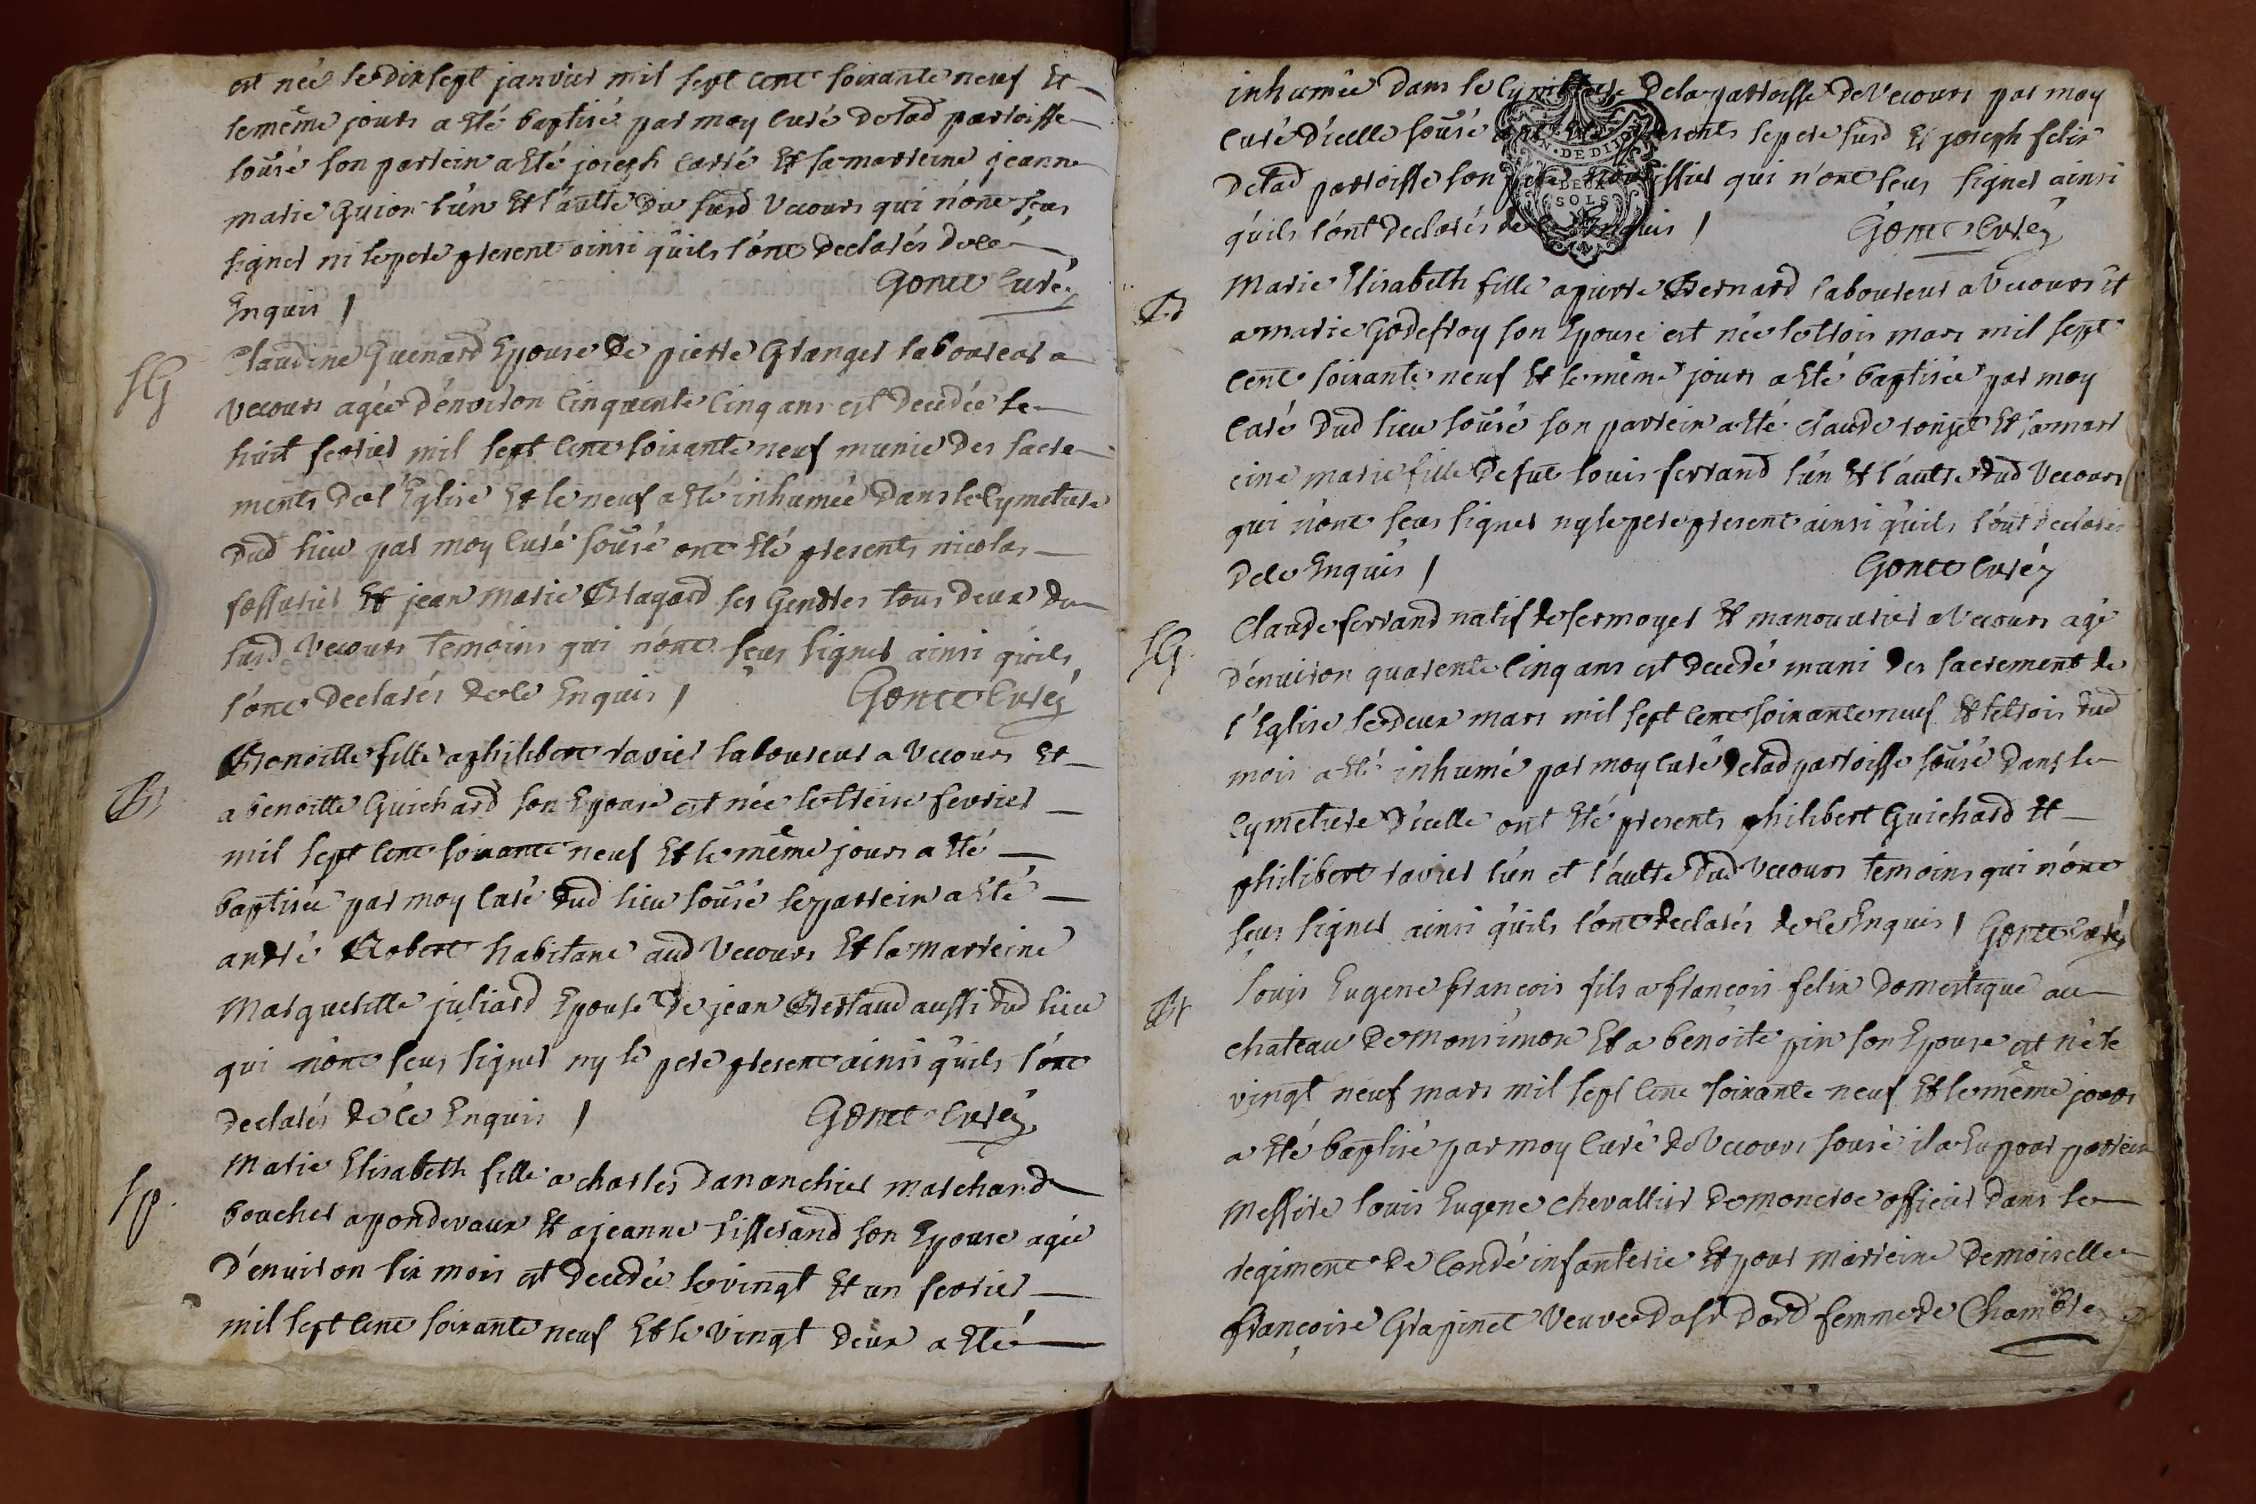 est née le dixsept janvier mil sept cent soixante neuf Et
le même jours a Eté baptisé par moy Curé de lad paroisse
sousé son parrein a Eté joseph Carré Et sa marreine jeanne
marie Guion l'un Et l'autre du susd Vecours qui n'ont sçus
signer ni le pere present ainsi qu'ils l'ont Declarés de ce
Enquis / Gonet Curé
SG
Claudine Guenard Epouse De pierre Granger laboureur a
Vecours agée d'environ Cinquente Cinq ans est Decedée le
huit fevrier mil sept Cent soixante neuf munie Des sacre-
ments de l'Eglise Et le neuf a Eté inhumée Dans le Cymetiere
Dud lieu par moy Curé sousé ont Eté presents nicolas
fossurier Et jean marie Bragard ses Gendres tous deux du
susd Vecours temoins qui n'ont sçus signer ainsi qu'ils
l'ont Declarés de ce Enquis / Gonet Curé
Bt
Benoitte fille a philibert ravier laboureur a Vecours Et
a benoitte Guichard son Epouse est née le treize fevrier
mil sept Cent soixante neuf Et le même jours a Eté
baptisée par moy Curé Dud lieu sousé le parrein a Eté
andré Robert habitant aud Vecours Et la marreine
Margueritte juliard Epouse De jean Berthaud aussi Dud lieu
qui n'ont sçus signer ny le pere present ainsi qu'ils l'ont
declarés de ce Enquis / Gonet Curé
Sp
Marie Elisabeth fille a charles Dananchier marchand
boucher a pondevaux Et a jeanne tisserand son Epouse agée
D'environ six mois est Decedée le vingt Et un fevrier
mil sept Cent soixante neuf Et le vingt Deux a Eté
inhumée Dans le Cymetiere De la parroisse De Vecours par moy
Curé d'icelle sousé ont Eté presents le pere susd Et joseph felix
De lad parroisse son pere nourissier qui n'ont sçus signer ainsi
qu'ils l'ont Declarés de ce Enquis / Gonet Curé
DEUX
SOLS
Bt
Marie Elisabeth fille a pierre Bernard laboureur a Vecours et
a marie Godefroy son Epouse est née le trois mars mil sept
Cent soixante neuf Et le même jours a Eté baptisée par moy
Curé Dud lieu sousé son parrein a Eté Claude ronjet Et sa marr
eine marie fille De fut louis ferrand l'un Et l'autre Dud Vecours
qui n'ont sçus signer ny le pere present ainsi qu'ils l'ont declarés
De ce Enquis / Gonet Curé
SG
Claude ferrand natif de sermoyer Et manouvrier a Vecours agé
D'environ quarente Cinq ans est Decedé muni Des sacrement de
l'Eglise le deux mars mil sept Cent soixante neuf Et le trois Dud
mois a Eté inhumé par moy Curé de lad parroisse sousé Dans le
Cymetiere D'icelle ont Eté presents philibert Guichard Et
philibert ravier l'un et l'autre Dud Vecours temoins qui n'ont
sçus signer ainsi qu'ils l'ont declarés de ce Enquis / Gonet Curé
Bt
louis Eugene francois fils a francois felix Domestique au
chateau De monsimon Et a benoite pin son Epouse est né le
vingt neuf mars mil sept Cent soixante neuf Et le même jours
a Eté baptisé par moy Curé De Vecours sousé il a Eu pour parrein
Messire louis Eugene chevallier De moncroc officier Dans le
regiment De Condé infanterie Et pour marreine Demoiselle
françoise Grapinet Veuve Dard femme de Chambre